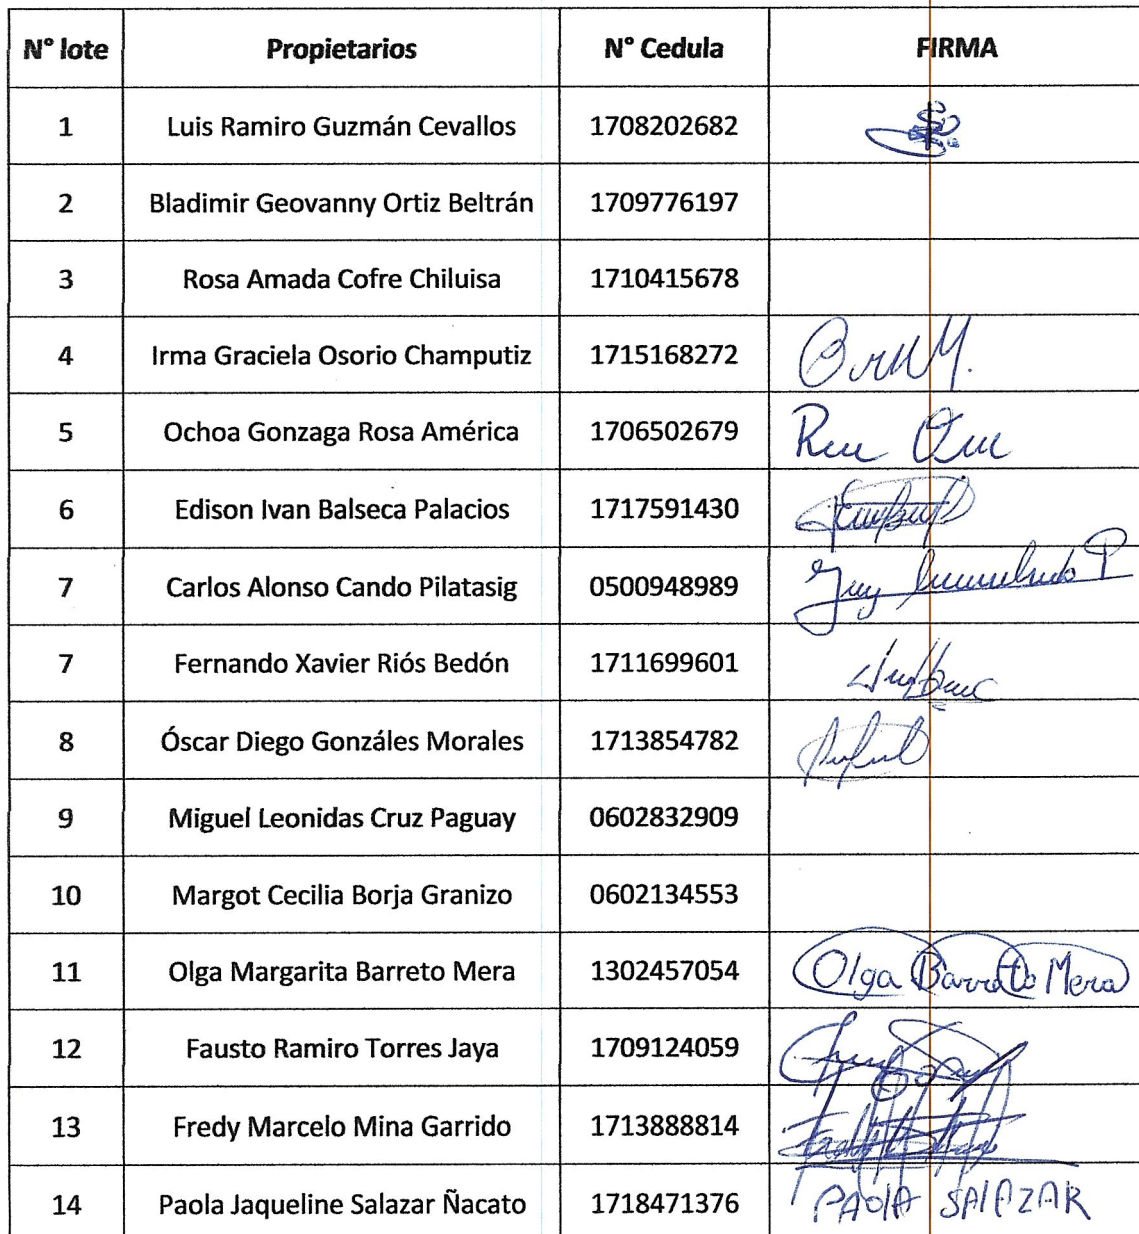 N° lote Propietarios N° Cedula FIRMA
1 Luis Ramiro Guzmán Cevallos 1708202682
2 Bladimir Geovanny Ortiz Beltrán 1709776197
3 Rosa Amada Cofre Chiluisa 1710415678
4 Irma Graciela Osorio Champutiz 1715168272
5 Ochoa Gonzaga Rosa América 1706502679
6 Edison Ivan Balseca Palacios 1717591430
7 Carlos Alonso Cando Pilatasig 0500948989
7 Fernando Xavier Riós Bedón 1711699601
8 Óscar Diego Gonzáles Morales 1713854782
9 Miguel Leonidas Cruz Paguay 0602832909
10 Margot Cecilia Borja Granizo 0602134553
11 Olga Margarita Barreto Mera 1302457054 Olga Barreto Mera
12 Fausto Ramiro Torres Jaya 1709124059
13 Fredy Marcelo Mina Garrido 1713888814
14 Paola Jaqueline Salazar Ñacato 1718471376 PAOlA SAlAZAR